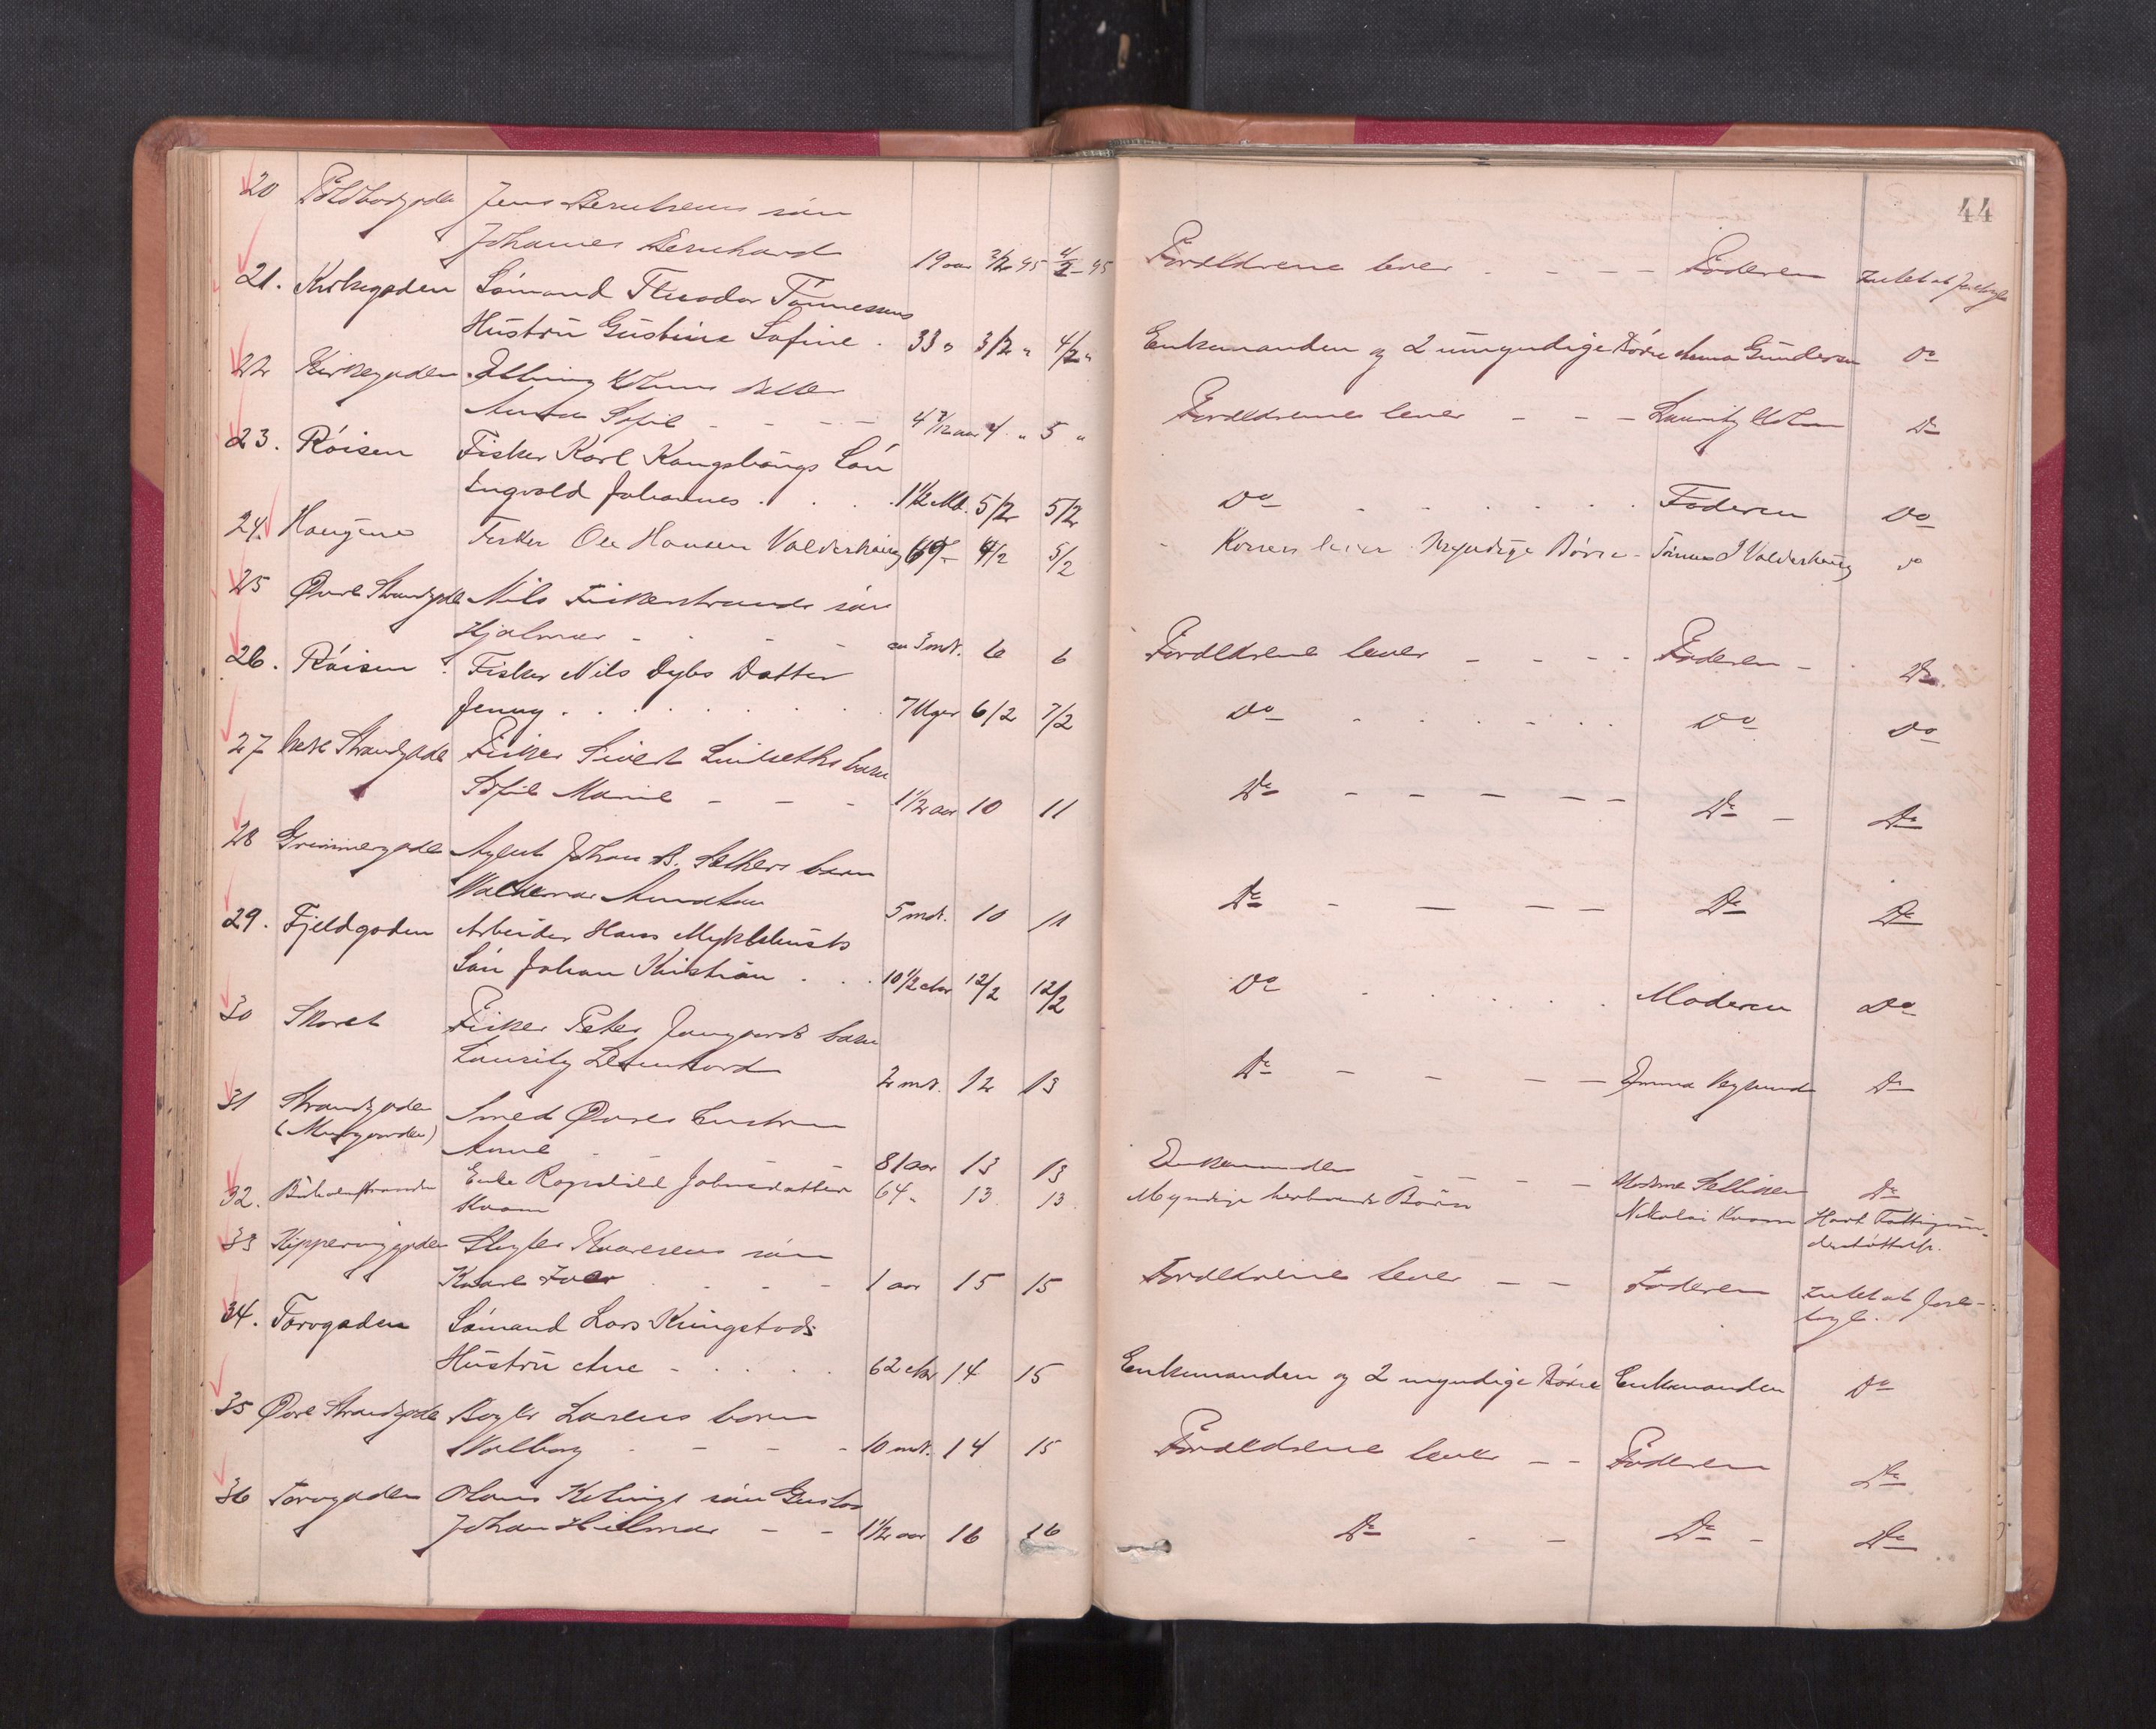 44
20 Jens Berntsens sön
Johannes Bernhard 19 aar 3/2 95 4/2 - 95 Forældrene lever - - - Faderen Intet at foretage
21. Kirkegaden Sömand Theodor Tönnesens
Hustru Gustine Sofine . 33 " 3/2 " 4/2 " Enkemanden og 2 umyndige Börn Anna Gundersen Do
22 Kirkegaden Holms datter
Anna Sofie - - - - 4 7/12 aar 4 " 5 " Forældrenes lever - - - Lauritz Holm Do
23. Röisen Fisker Karl Kongshaugs Sön
Ingvald Johannes . . . 1 1/2 Md. 5/2 5/2 Do . . . . . Faderen Do
24. Haugene Fisker Ole Hansen Valderhaug 69 - 4/2 5/2 Konen lever Myndige Börn - Tönnes I Valderhaug Do
25 Övre Strandgade Nils Fiskerstrands sön
Hjalmar - - - - ca 3 mdr. 6 6 Forældrene lever - - - - Faderen - Do
26. Röisen Fisker Nils Dybs Datter
Jenny . . . . . . . 7 Uger 6/2 7/2 Do . . . . . Do Do
27 Strandgade Fisker Sivert barn
Sofie Marie - - - 1 1/2 aar 10 11 Do - - - - - Do - Do
28 Grimmergade Agent Johan B. Sæthers barn
Waldemar 5 mdr. 10 11 Do - - - - Do Do
29. Fjeldgaden Arbeider Hans Myklebusts
Sön Johan Kristian . . . 10 1/2 Aar 12/2 12/2 Do . . . . . Moderen Do
30 Skaret Fisker Peter Jangaards barn
Lauritz Leonhard 2 mdr. 12 13 Do - - - - Emma Do
31 Strandgaden
(Murgaarden) Smed Övres hustru
Anne - - 81 aar 13 13 Enkemanden - - - - Do
32. Enke Ragnhild Johnsdatter 64 " 13 13 Myndige herboende Börn Nikolai Kvam Havt Fattigun-
Kvam derstöttelse.
33 Kipperviggaden Kaaresens sön
Kaare Ivar - - - 1 aar 15 15 Forældrene lever - - Faderen Intet at fore-
tage.
34. Torvgaden Sömand Lars Kringstads
Hustru Ane - . . . . 62 Aar 14 15 Enkemanden og 2 myndige Börn Enkemanden Do
35 Övre Strandgade Larsens barn
Valborg - - - - 10 mdr. 14 15 Forældrene lever - - Faderen Do
36 Torvgaden Olaus sön Gustav
Johan Hilmar - - 1 1/2 aar 16 16 Do - - Do - Do